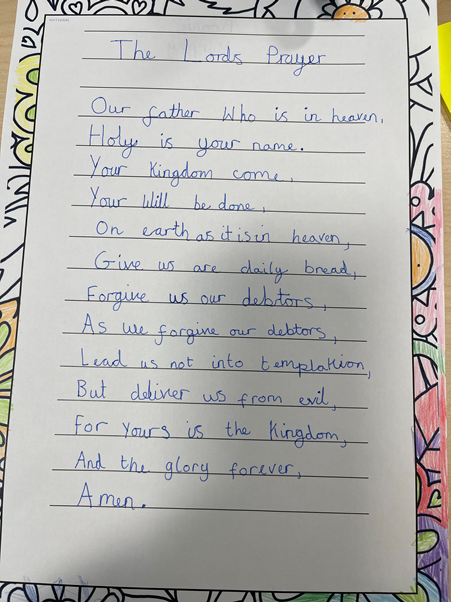 The Lords Prayer
Our father Who is in heaven,
Holy is your name.
Your Kingdom come,
Your Will be done,
On earth as it is in heaven,
Give us are daily bread,
Forgive us our debtors,
As we forgive our debtors,
Lead us not into templation,
But deliver us from evil,
For yours is the Kingdom,
And the glory forever,
Amen.